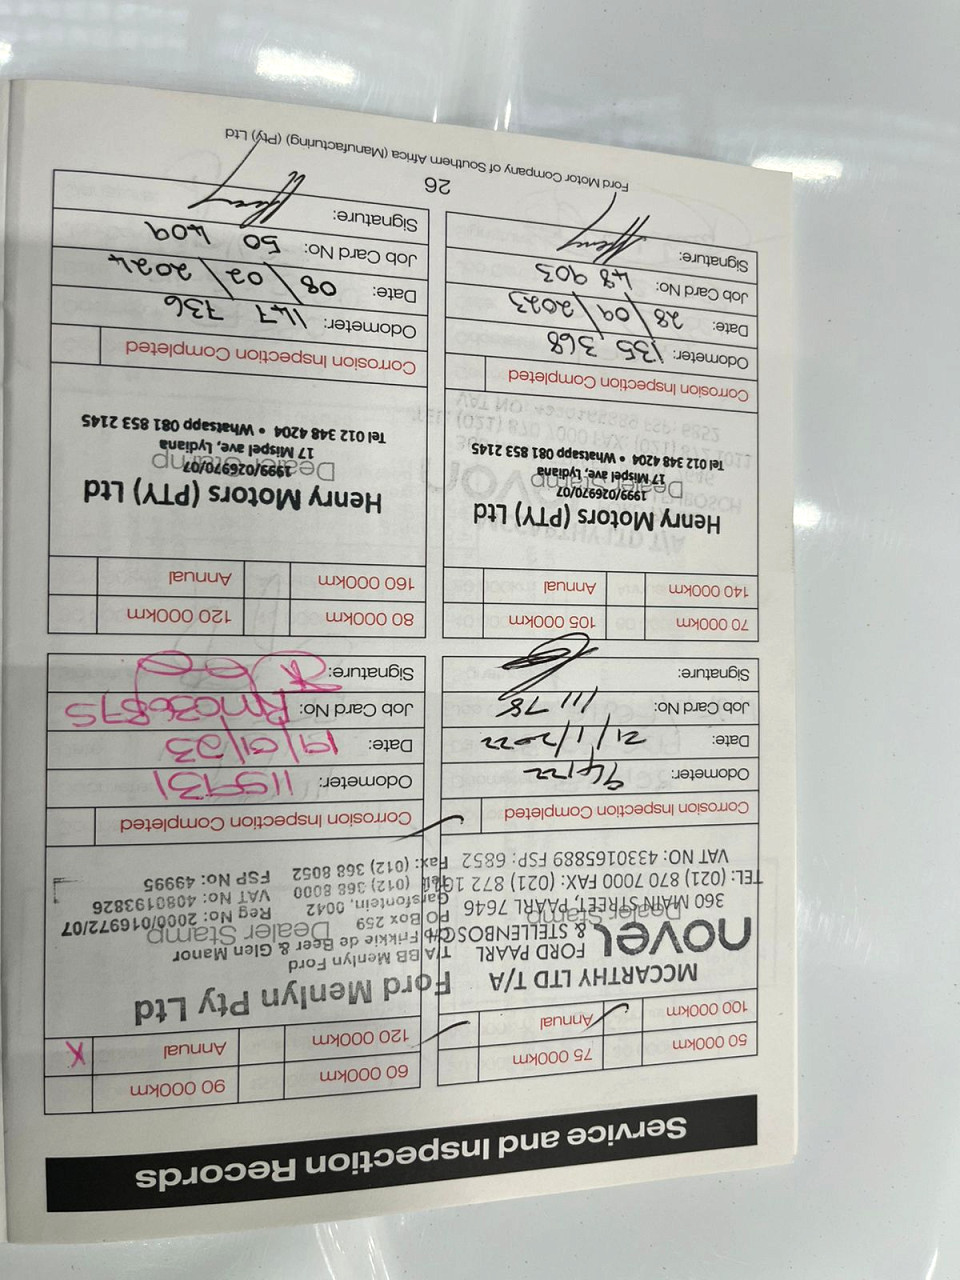 Service and Inspection Records
50 000km 75 000km
100 000km Annual
MCCARTHY LTD T/A
novel FORD PAARL
& STELLENBOSCH
Dealer Stamp
360 MAIN STREET, PAARL 7646
TEL: (021) 870 7000 FAX: (021) 872
VAT NO: 4330165889 FSP: 6852
Corrosion Inspection Completed
Odometer:
Date: 21/1/2022
Job Card No:
Signature:
60 000km 90 000km
120 000km Annual X
Ford Menlyn Pty Ltd
T/A BB Menlyn Ford
C/o Frikkie de Beer & Glen Manor
Dealer Stamp
PO Box 259 Reg No: 2000/016972/07
Garsfontein, 0042 VAT No: 4080193826
Tel: (012) 368 8000 FSP No: 49995
Fax: (012) 368 8052
Corrosion Inspection Completed
Odometer: 115931
Date: 19/01/23
Job Card No: RM036875
Signature:
70 000km 105 000km
140 000km Annual
Henry Motors (PTY) Ltd
1999/026970/07
Dealer Stamp
17 Mispel ave, Lydiana
Tel 012 348 4204 • Whatsapp 081 853 2145
Corrosion Inspection Completed
Odometer: 135 368
Date: 28/09/2023
Job Card No: 48 903
Signature:
80 000km 120 000km
160 000km Annual
Henry Motors (PTY) Ltd
1999/026970/07
Dealer Stamp
17 Mispel ave, Lydiana
Tel 012 348 4204 • Whatsapp 081 853 2145
Corrosion Inspection Completed
Odometer: 147 736
Date: 08/02/2024
Job Card No: 50 409
Signature:
26
Ford Motor Company of Southern Africa (Manufacturing) (Pty) Ltd